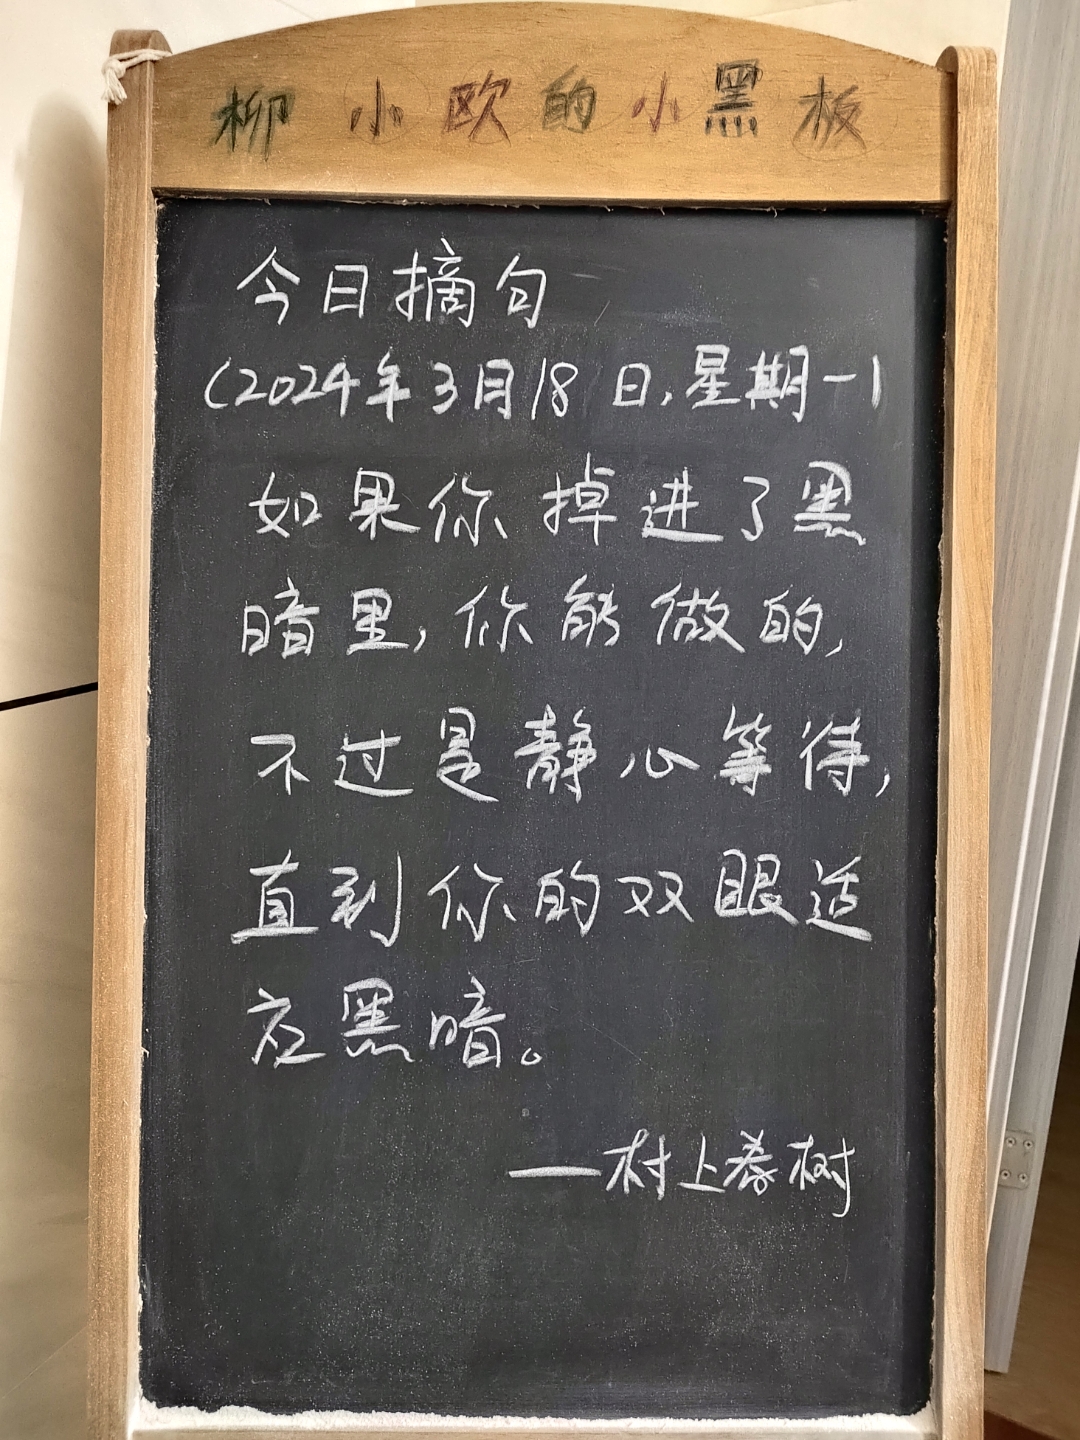 柳小欧的小黑板
今日摘句
(2024年3月18日,星期一)
如果你掉进了黑
暗里,你能做的,
不过是静心等待,
直到你的双眼适
应黑暗。
——村上春树